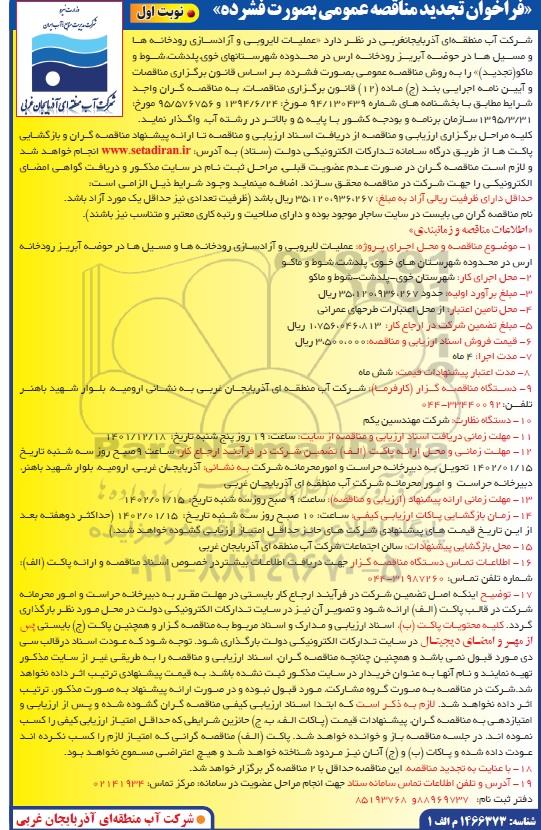 «فراخوان تجدید مناقصه عمومی بصورت فشرده»
نوبت اول
وزارت نیرو
شرکت مدیریت منابع آب ایران
شرکت آب منطقه ای آذربایجان غربی
شرکت آب منطقه‌ای آذربایجانغربی در نظر دارد «عملیات لایروبی و آزادسازی رودخانه ها
و مسیل ها در حوضه آبریز رودخانه ارس در محدوده شهرستانهای خوی،پلدشت،شوط و
ماکو(تجدید)» را به روش مناقصه عمومی بصورت فشرده، بر اساس قانون برگزاری مناقصات
و آیین نامه اجرایی بند (ج) ماده (12) قانون برگزاری مناقصات، به مناقصه گران واجد
شرایط مطابق با بخشنامه های شماره 94/130439 مورخ: 1394/6/24 و 95/576756 مورخ:
1395/3/31 سازمان برنامه و بودجه کشور با پایه 5 و بالاتر در رشته آب، واگذار نمایند.
کلیه مراحل برگزاری ارزیابی و مناقصه از دریافت اسناد ارزیابی و مناقصه تا ارائه پیشنهاد مناقصه گران و بازگشایی
پاکت ها از طریق درگاه سامانه تدارکات الکترونیکی دولت (ستاد) به آدرس: www.setadiran.ir انجام خواهد شد
و لازم است مناقصه گران در صورت عدم عضویت قبلی، مراحل ثبت نام در سایت مذکور و دریافت گواهی امضای
الکترونیکی را جهت شرکت در مناقصه محقق سازند. اضافه مینماید وجود شرایط ذیل الزامی است:
حداقل دارای ظرفیت ریالی آزاد به مبلغ: 35،120،936،267 ریال باشد (ظرفیت تعدادی نیز حداقل یک مورد آزاد باشد.
نام مناقصه گران می بایست در سایت ساجار موجود بوده و دارای صلاحیت و رتبه کاری معتبر و متناسب نیز باشند).
«اطلاعات مناقصه و زمانبندی»
1- موضوع مناقصه و محل اجرای پروژه: عملیات لایروبی و آزادسازی رودخانه ها و مسیل ها در حوضه آبریز رودخانه
ارس در محدوده شهرستان های خوی، پلدشت،شوط و ماکو
2- محل اجرای کار: شهرستان خوی-پلدشت-شوط و ماکو
3- مبلغ برآورد اولیه: حدود 35،120،936،267 ریال
4- محل تامین اعتبار: از محل اعتبارات طرحهای عمرانی
5- مبلغ تضمین شرکت در ارجاع کار: 1،756،046،813 ریال
6- قیمت فروش اسناد ارزیابی و مناقصه: 3،500،000 ریال
7- مدت اجرا: 4 ماه
8- مدت اعتبار پیشنهادات قیمت: شش ماه
9- دستگاه مناقصه گزار (کارفرما): شرکت آب منطقه ای آذربایجان غربی به نشانی ارومیه، بلوار شهید باهنر
تلفن: 33440092-044
10- دستگاه نظارت: شرکت مهندسین یکم
11- مهلت زمانی دریافت اسناد ارزیابی و مناقصه از سایت: ساعت: 19 روز پنج شنبه تاریخ: 1401/12/18
12- مهلت زمانی و محل ارائه پاکت (الف) تضمین شرکت در فرآیند ارجاع کار: ساعت 9 صبح روز سه شنبه تاریخ
1402/01/15 تحویل به دبیرخانه حراست و امورمحرمانه شرکت به نشانی: آذربایجان غربی، ارومیه، بلوار شهید باهنر،
دبیرخانه حراست و امور محرمانه شرکت آب منطقه ای آذربایجان غربی
13- مهلت زمانی ارائه پیشنهاد (ارزیابی و مناقصه): ساعت: 9 صبح روز سه شنبه تاریخ: 1402/01/15
14- زمان بازگشایی پاکات ارزیابی کیفی: ساعت: 10 صبح روز سه شنبه تاریخ: 1402/01/15 (حداکثر دوهفته بعد
از این تاریخ قیمت های پیشنهادی شرکت های حائز حداقل امتیاز ارزیابی گشوده خواهد شد.)
15- محل بازگشایی پیشنهادات: سالن اجتماعات شرکت آب منطقه ای آذربایجان غربی
16- اطلاعات تماس دستگاه مناقصه گزار جهت دریافت اطلاعات بیشتردر خصوص اسناد مناقصه و ارائه پاکت (الف):
شماره تلفن تماس: 31987260-044
17- توضیح اینکه اصل تضمین شرکت در فرآیند ارجاع کار بایستی در مهلت مقرر به دبیرخانه حراست و امور محرمانه
شرکت در قالب پاکت (الف) ارائه شود و تصویر آن نیز در سایت تدارکات الکترونیکی دولت در محل مورد نظر بارگذاری
گردد. کلیه محتویات پاکت (ب)، اسناد ارزیابی و مدارک و اسناد مربوط به مناقصه گزار و همچنین پاکت (ج) بایستی پس
از مهر و امضای دیجیتال در سایت تدارکات الکترونیکی دولت بارگذاری شود. توجه شود که عودت اسناد درقالب سی
دی مورد قبول نمی باشد و همچنین چنانچه مناقصه گران، اسناد ارزیابی و مناقصه را به طریقی غیر از سایت مذکور
تهیه نمایند و نام آنها به عنوان خریدار در سایت مذکور ثبت نشده باشد، به قیمت پیشنهادی ترتیب اثر داده نخواهد
شد.شرکت در مناقصه به صورت گروه مشارکت، مورد قبول نبوده و در صورت ارائه پیشنهاد به صورت مذکور، ترتیب
اثر داده نخواهد شد. لازم به ذکر است که ابتدا اسناد ارزیابی کیفی مناقصه گران گشوده شده و پس از ارزیابی و
امتیازدهی به مناقصه گران، پیشنهادات قیمت (پاکات الف، ب، ج) حائزین شرایطی که حداقل امتیاز ارزیابی کیفی را کسب
نموده اند، در جلسه مناقصه باز و خوانده خواهد شد. پاکت (الف) مناقصه گرانی که امتیاز لازم را کسب نکرده اند
عودت داده شده و پاکات (ب) و (ج) آنان نیز مردود شناخته خواهد شد و هیچ اعتراضی مسموع نخواهد بود.
18- با عنایت به تجدید مناقصه، این مناقصه حداقل با 2 مناقصه گر برگزار خواهد شد.
19- آدرس و تلفن اطلاعات تماس سامانه ستاد جهت انجام مراحل عضویت در سامانه: مرکز تماس: 02141934
دفتر ثبت نام: 88969737 و 85193768
شناسه: 1466373 م الف 1
شرکت آب منطقه‌ای آذربایجان غربی